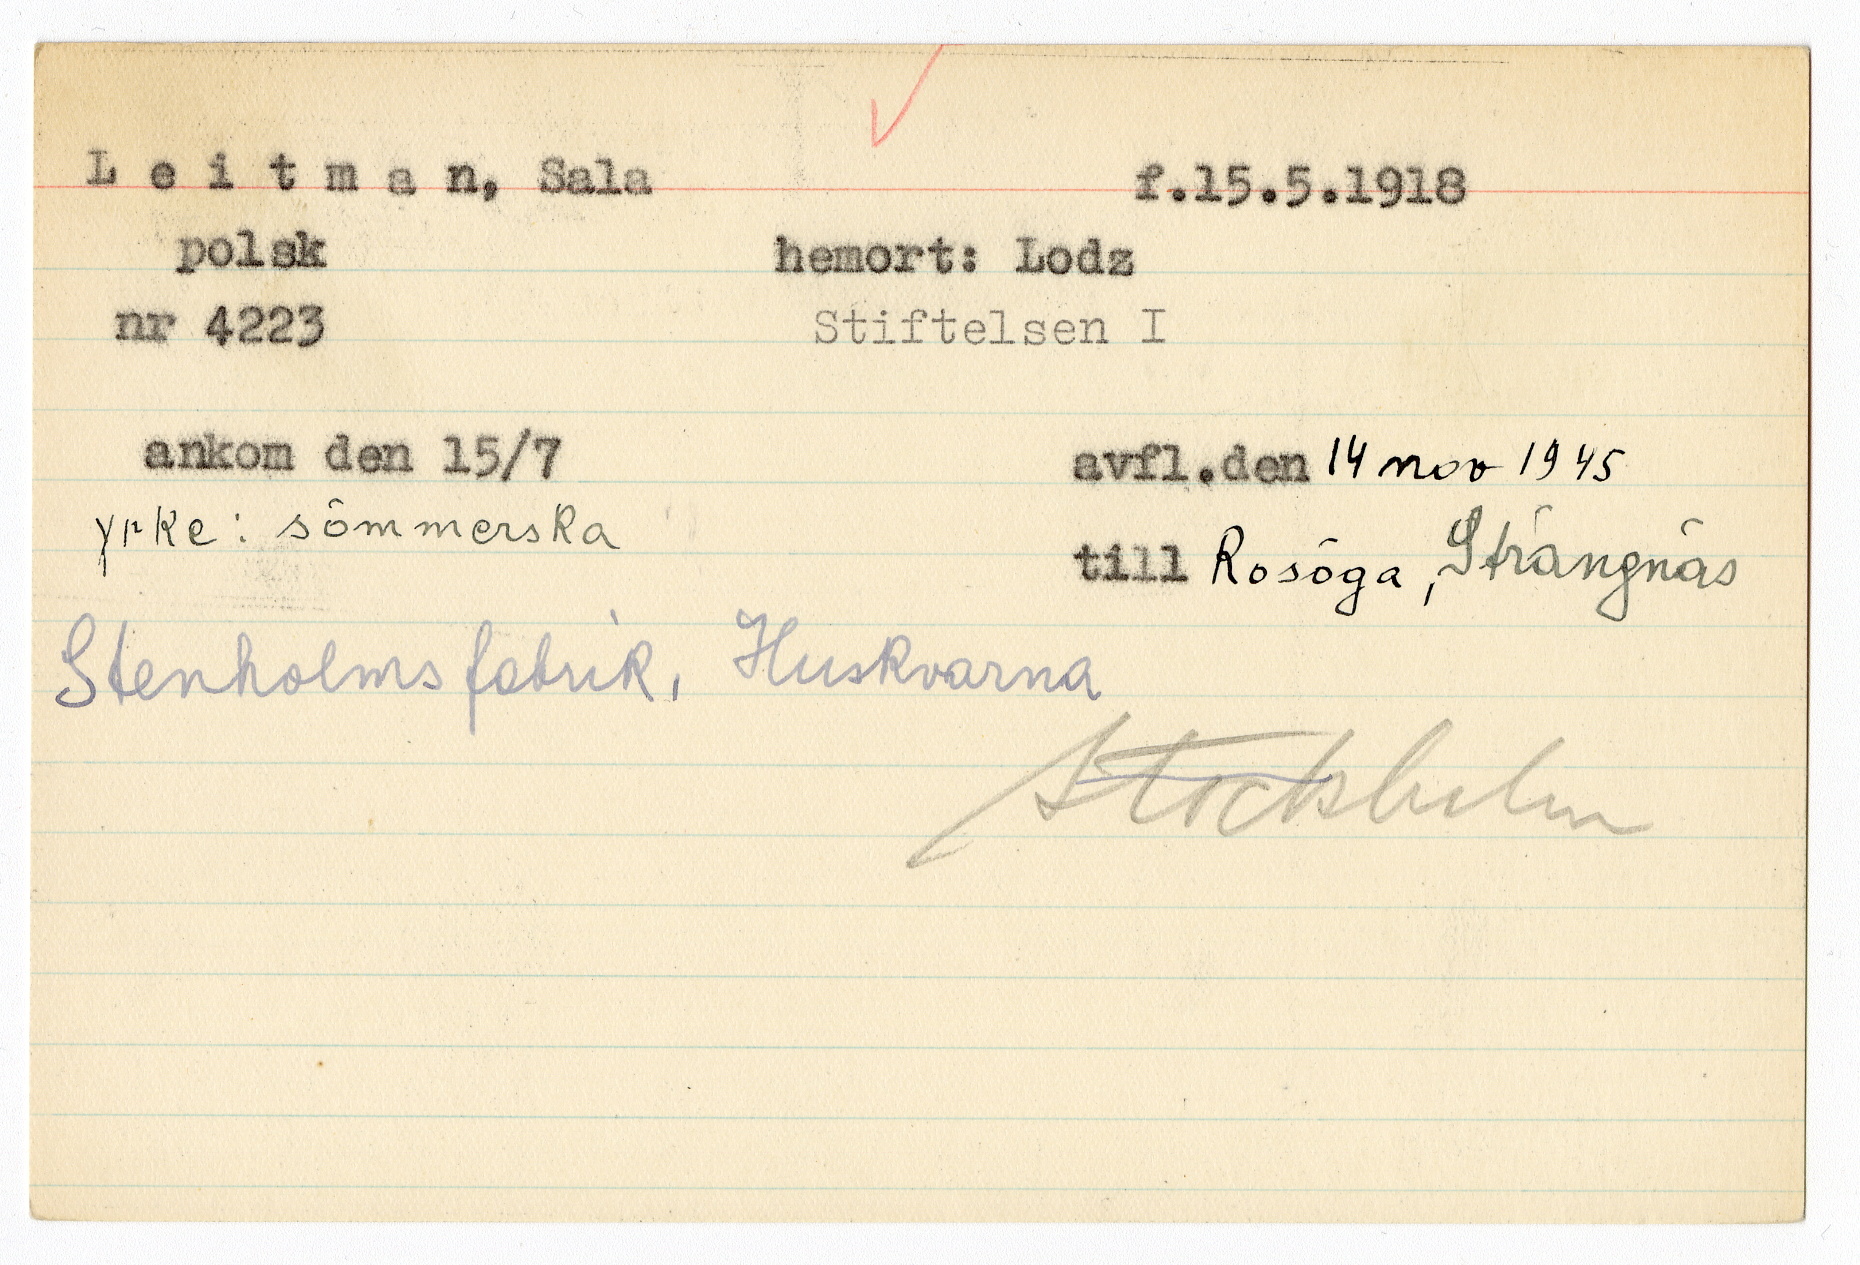 Leitman, Sala f.15.5.1918
polsk hemort: Lodz
nr 4223 Stiftelsen I
ankom den 15/7 avfl.den 14 nov 1945
yrke: sömmerska
till Rosöga, Strängnäs
Stenholms fabrik, Huskvarna
Stockholm